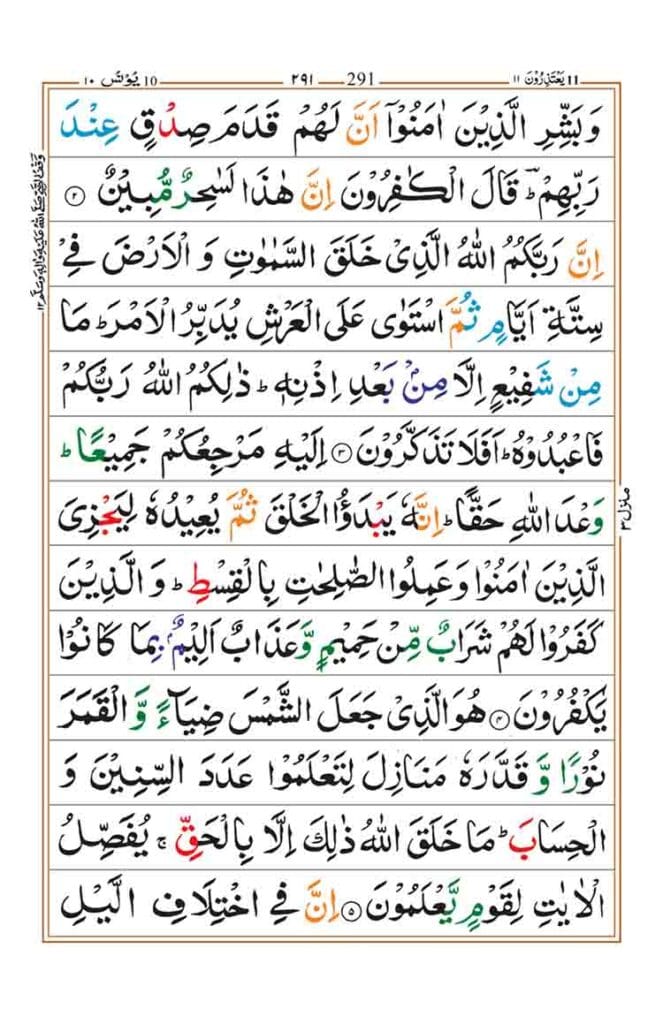 ١٠ يُوْنُس 10 ٢٩١ 291 ١١ يَعْتَذِرُوْنَ 11
وَبَشِّرِ الَّذِيْنَ اٰمَنُوْۤا اَنَّ لَهُمْ قَدَمَ صِدْقٍ عِنْدَ
رَبِّهِمْ ؕ قَالَ الْكٰفِرُوْنَ اِنَّ هٰذَا لَسٰحِرٌ مُّبِيْنٌ ۝۲
اِنَّ رَبَّكُمُ اللّٰهُ الَّذِىْ خَلَقَ السَّمٰوٰتِ وَ الْاَرْضَ فِىْ
سِتَّةِ اَيَّامٍ ثُمَّ اسْتَوٰى عَلَى الْعَرْشِ يُدَبِّرُ الْاَمْرَ ؕ مَا
مِنْ شَفِيْعٍ اِلَّا مِنْۢ بَعْدِ اِذْنِهٖ ؕ ذٰلِكُمُ اللّٰهُ رَبُّكُمْ
فَاعْبُدُوْهُ ؕ اَفَلَا تَذَكَّرُوْنَ ۝۳ اِلَيْهِ مَرْجِعُكُمْ جَمِيْعًا ؕ
وَعْدَ اللّٰهِ حَقًّا ؕ اِنَّهٗ يَبْدَؤُا الْخَلْقَ ثُمَّ يُعِيْدُهٗ لِيَجْزِىَ
الَّذِيْنَ اٰمَنُوْا وَعَمِلُوا الصّٰلِحٰتِ بِالْقِسْطِ ؕ وَ الَّذِيْنَ
كَفَرُوْا لَهُمْ شَرَابٌ مِّنْ حَمِيْمٍ وَّعَذَابٌ اَلِيْمٌۢ بِمَا كَانُوْا
يَكْفُرُوْنَ ۝۴ هُوَ الَّذِىْ جَعَلَ الشَّمْسَ ضِيَآءً وَّ الْقَمَرَ
نُوْرًا وَّ قَدَّرَهٗ مَنَازِلَ لِتَعْلَمُوْا عَدَدَ السِّنِيْنَ وَ
الْحِسَابَ ؕ مَا خَلَقَ اللّٰهُ ذٰلِكَ اِلَّا بِالْحَقِّ ۚ يُفَصِّلُ
الْاٰيٰتِ لِقَوْمٍ يَّعْلَمُوْنَ ۝۵ اِنَّ فِى اخْتِلَافِ الَّيْلِ
منزل ٣